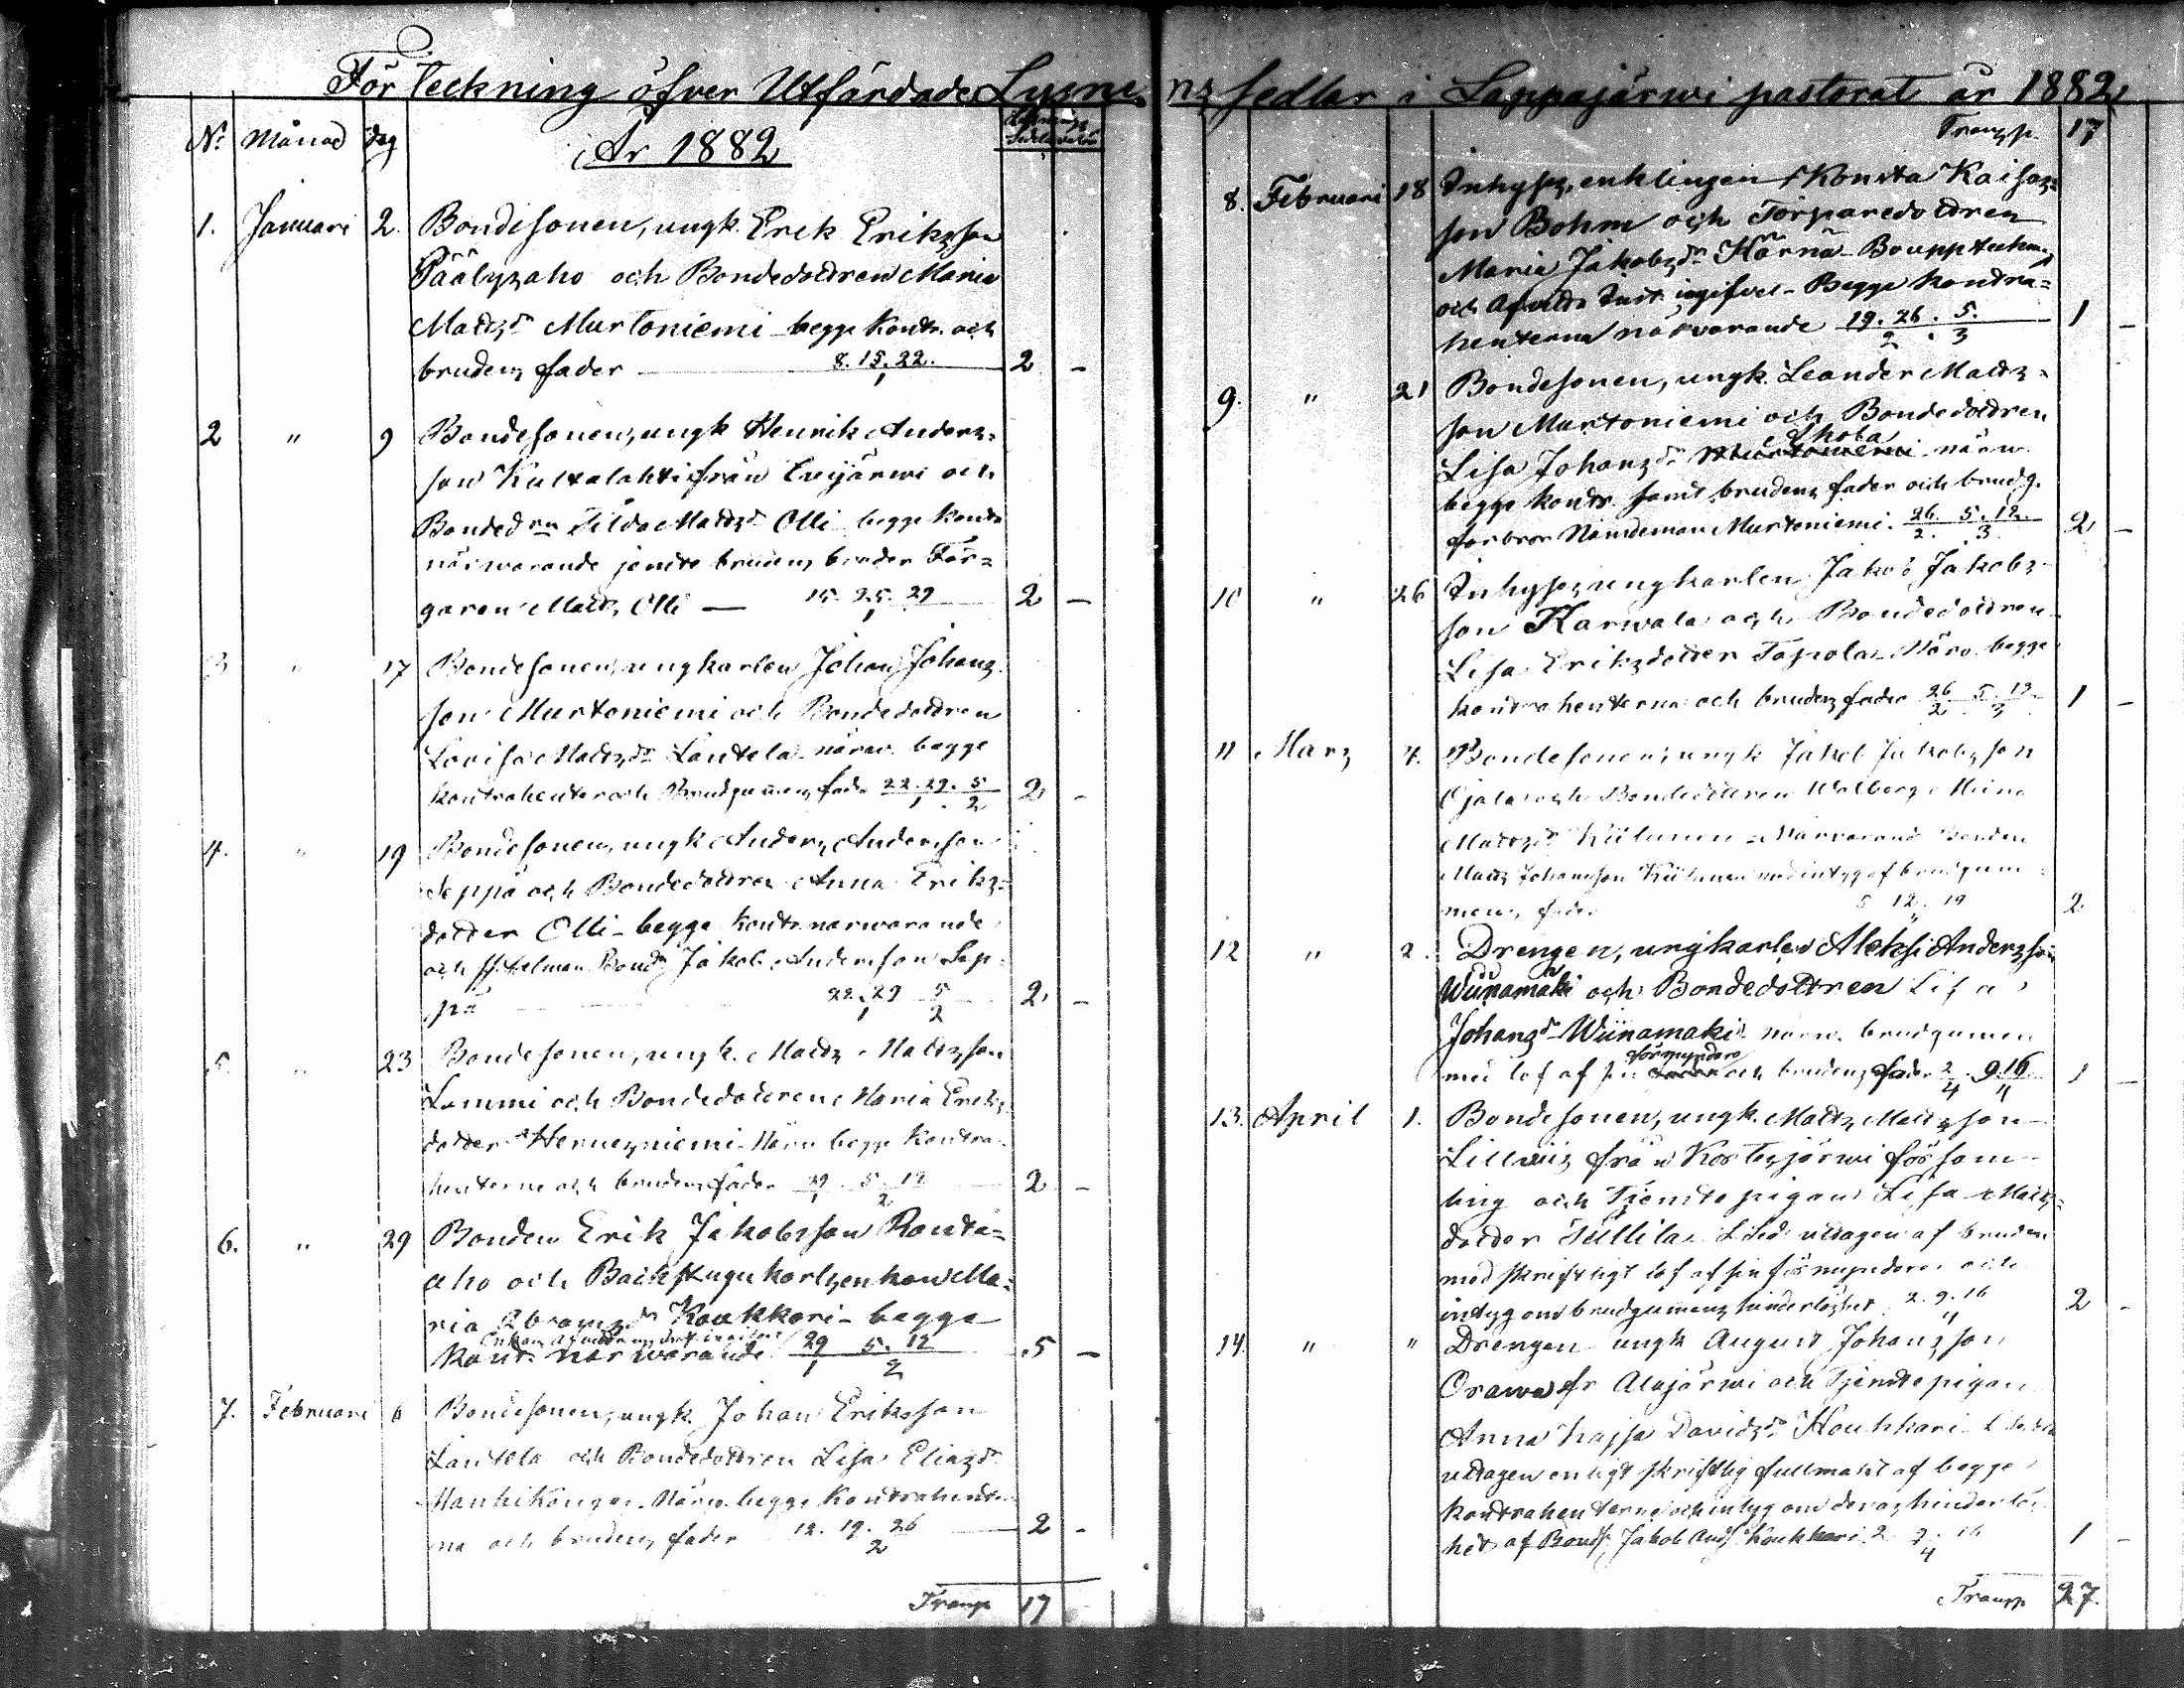 Förteckning öfver Utfärdade Lysningssedlar i Lappajärwi pastorat år 1882
No Månad dag
År 1882
1. Januari 2. Bondesonen, ungk. Erek Eriksson
Päälysaho och Bondedottren Maria
Mattsdr Murtoniemi begge kontr. och
brudens fader 8. 15. 22. 1 2 -
2 " 9 Bondesonen, ungk Henrik Anders=
son Kultalahti från Evijärwi och
Bondedrn Tilda Mattsdr Olli begge kontr
närwarande jemte brudens broder Tor=
garen Matts Olli — 15. 25. 29 1 2 —
3 " 17 Bondesonen, ungkarlen Johan Johans
son Murtoniemi och Bondedottren
Lovisa Mattsdr Lantela närw. begge
kontrahenter och Brudgummens fader 22. 29. 5 1 2 2 -
4. " 19 Bondesonen, ungk Anders Andersson
Seppä och Bondedottren Anna Eriks=
dotter Olli - begge kontr narwarande
och Bond. Jakob Andersson Sep=
pä 22. 29 5 1 2 2 -
5. " 23 Bondesonen, ungk. Matts Mattsson
Lammi och Bondedottren Maria Eriks
dotter Hernesniemi Närw begge Kontra
henterne och brudens fader 29 5. 12 1 2 2 -
6. " 29 Bonden Erik Jakobsson Ranta=
aho och Backstugukarlsenkan Ma=
ria Abramsdr Koukkari - begge
kontr närwarande 29 5. 12 1 2 5 —
7. Februari 6 Bondesonen, ungk. Johan Eriksson
Lantela och Bondedottren Lisa Eliasdr
Hanhikangas. Närw. begge Kontrahenter
na och brudens fader 12. 19. 26 2 2 -
Transp 17
Transp. 17
8. Februari 18 Inhyses enklingen Konsta Kaisas=
son Bohm och Torparedottren
Maria Jakobsdr Härnä - Boupptekn.
och ingifvet - Begge kontra=
henterna närvarande 19. 26. 5. 2 3 1 -
9. " 21 Bondesonen, ungk. Leander Matts=
son Murtoniemi och Bondedottren
Ahola
Lisa Johansdr Murtoniemi närw
begge kontr. samt brudens fader och brudg.
farbror Nämdeman Murtoniemi. 26. 5. 12. 2. 3 2 -
10 " 26 Inhyses ungkarlen Jakob Jakobs
son Karwala och Bondedottren
Lisa Eriksdotter Tapola - Närv. begge
kontrahenterna och brudens fader 26 5. 12 2 3 1 -
11 Mars 4. Bondesonen, ungk Jakob Jakobsson
Ojala och Bondedottren Walborg Miina
Mattsdr Kiilunen - Närvarand Bonden
Matts Johansson Kiilunen med intyg af brudgum
mens fader 5 12. 19 2
12 " 2. Drengen, ungkarlen Aleksi Andersson
Wiinamäki och Bondedottren Lisa
Johansdr Wiinamäki närw. brudgummen
förmyndare
med lof af sin fader och brudens fader 2 9. 16 4 1 -
13. April 1. Bondesonen, ungk. Matts Mattsson
Lillwiis från Kortesjärwi försam=
ling och Tjenstepigan Lisa Matts=
dotter Tullila. L Sed. uttagen af bruden
med skriftligt lof af sin förmyndare och
intyg om brudgummens hinderlöshet 2. 9. 16 " 2 -
14. " " Drengen ungk August Johansson
Orawa fr Alajärwi och Tjenstepigan
Anna Kajsa Davidsdr Koukkari
uttagen enligt skriftlig fullmakt af begge
kontrahenterne och intyg om deras hinderlös
het af Bonds. Jakob Ands Koukkari 2. 9. 16 4 1 -
Transp 27.